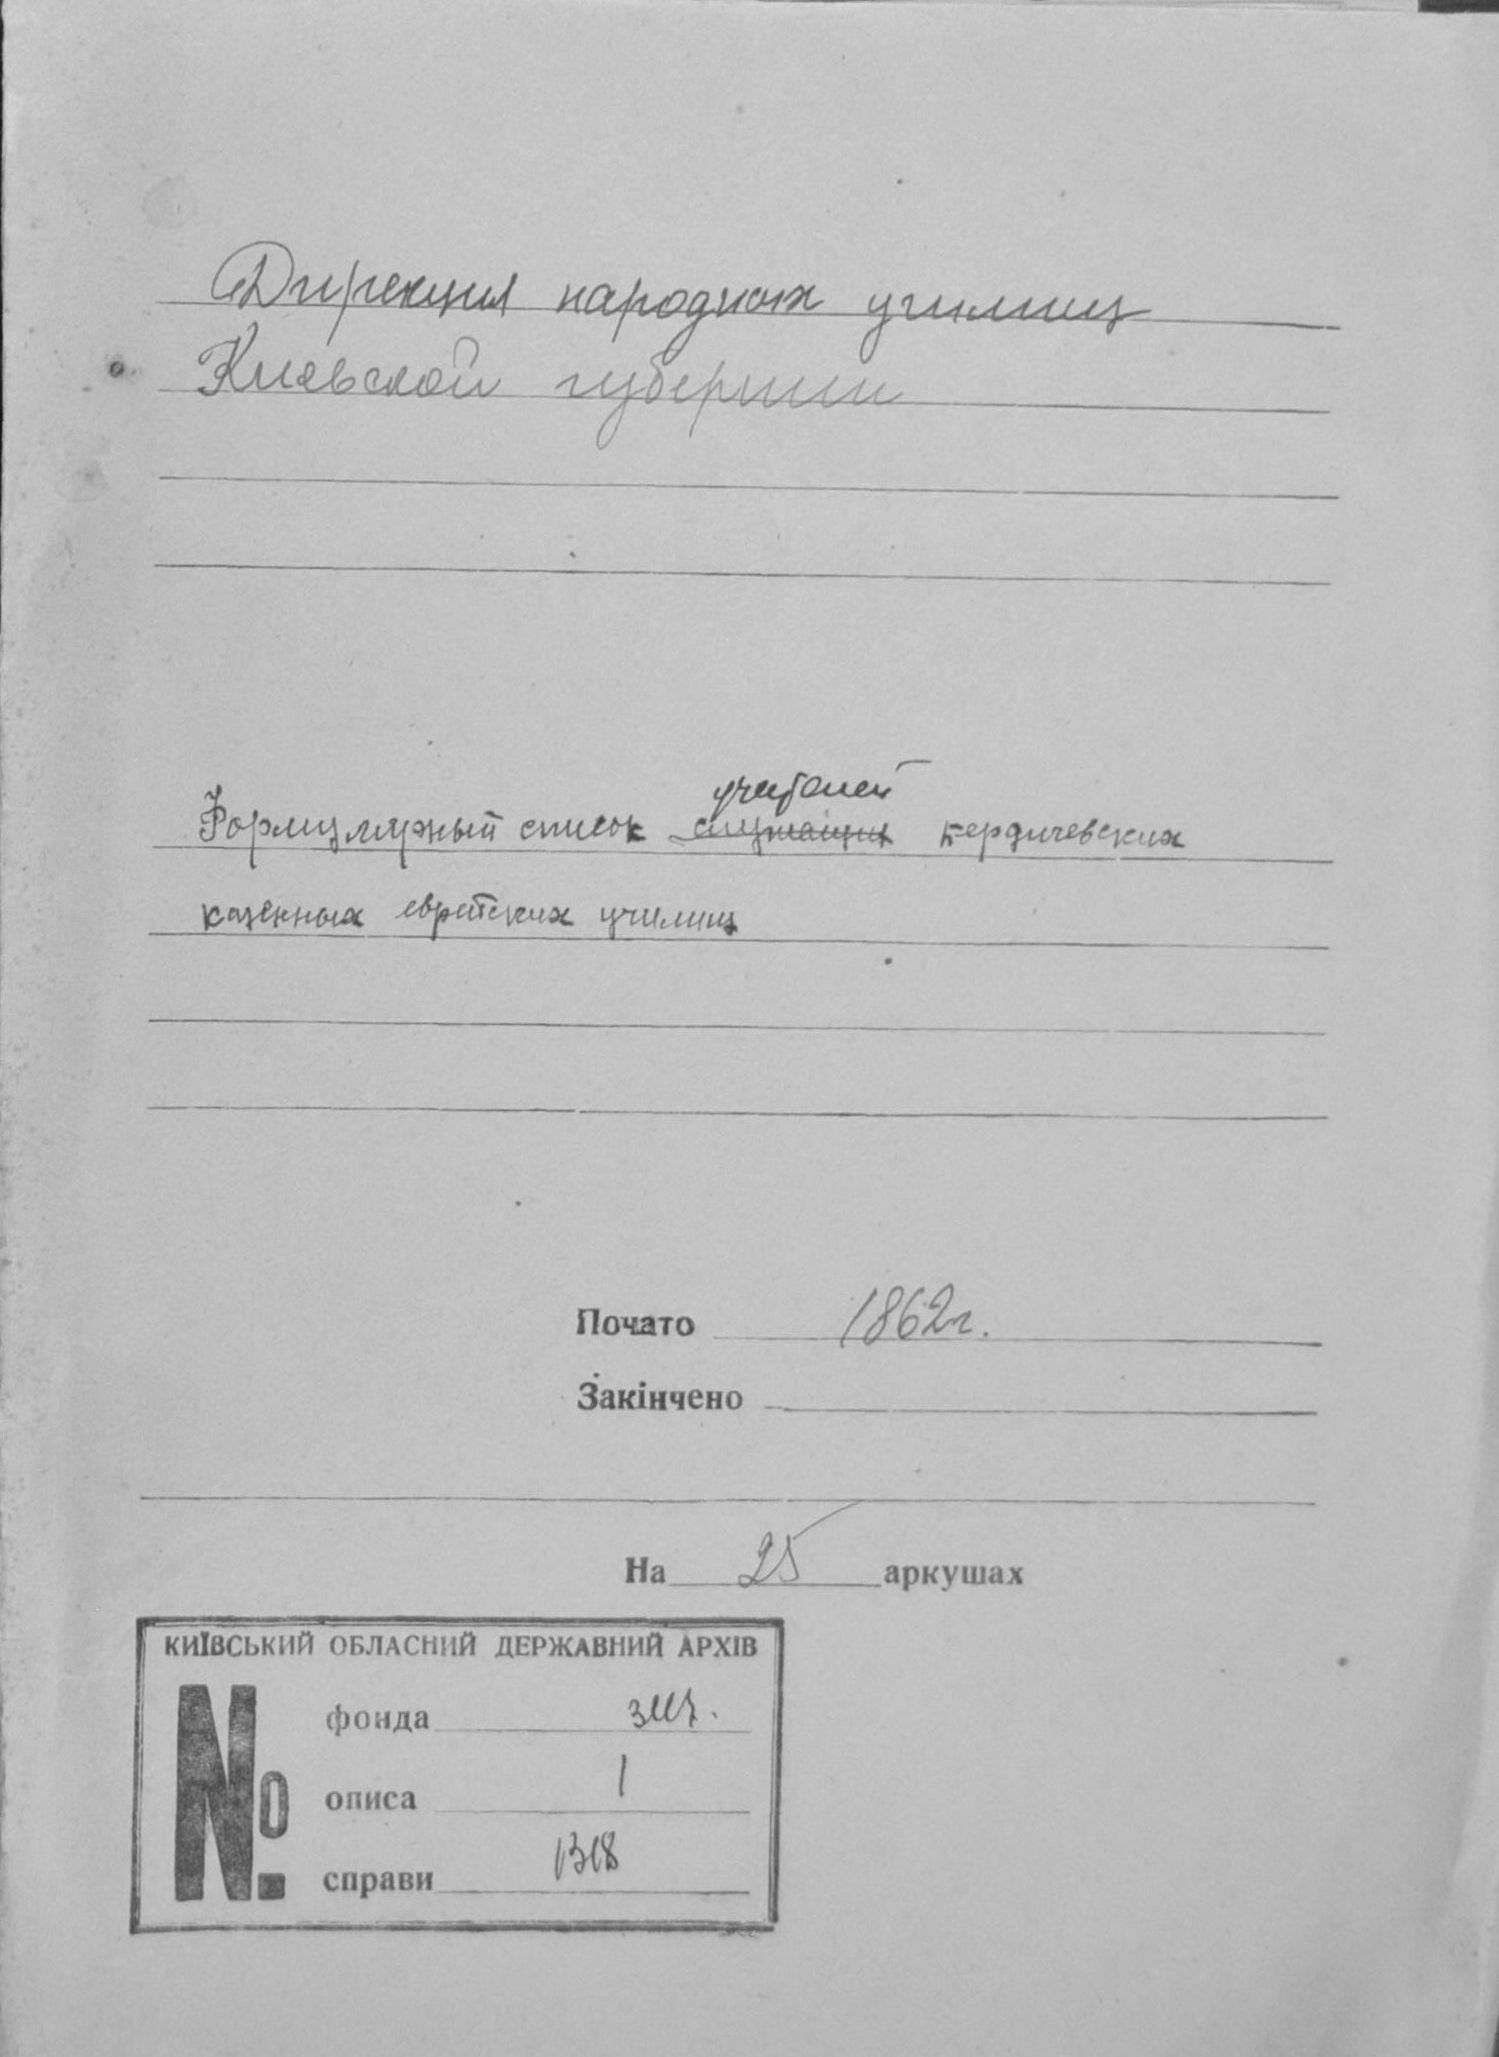 Дирекция народных училищ
Киевской губернии
учителей
Формулярный список служащих бердичевских
казенных еврейских училищ
Почато 1862г.
Закінчено
На 25 аркушах
КИЇВСЬКИЙ ОБЛАСНИЙ ДЕРЖАВНИЙ АРХІВ
№
фонда
описа 1
справи 1318